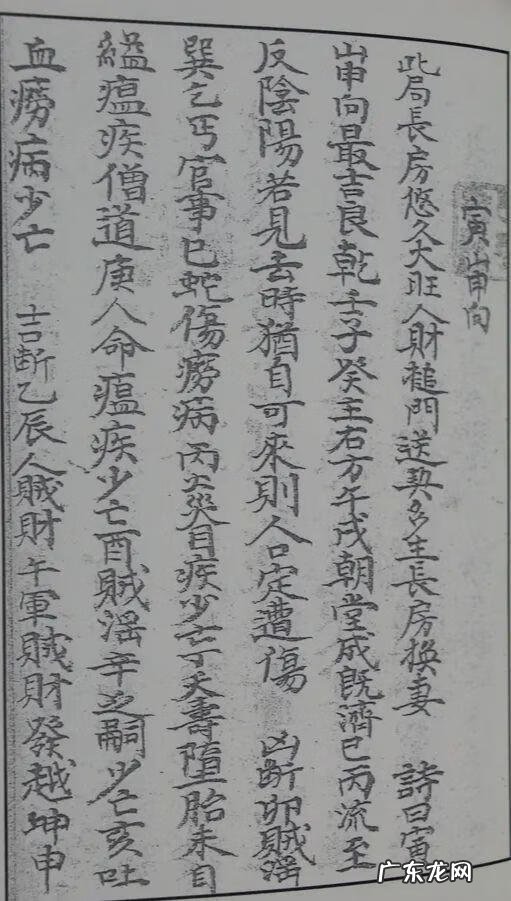 寅山申向
此局長房悠久大旺人財槌門送契多主長房換妻　詩曰寅
山申向最吉良乾壬子癸主右方午戌朝堂成既濟巳丙流至
反陰陽若見去時猶自可來則人口定遭傷　凶断卯賊淫
巽乞丐官事巳蛇傷癆病丙火災目疾少亡丁夭壽墮胎未自
縊瘟疾僧道庚人命瘟疾少亡酉賊淫辛乏嗣少亡亥吐
血癆病少亡　吉断乙辰人賊財午軍賊財發越坤申
广东龙网